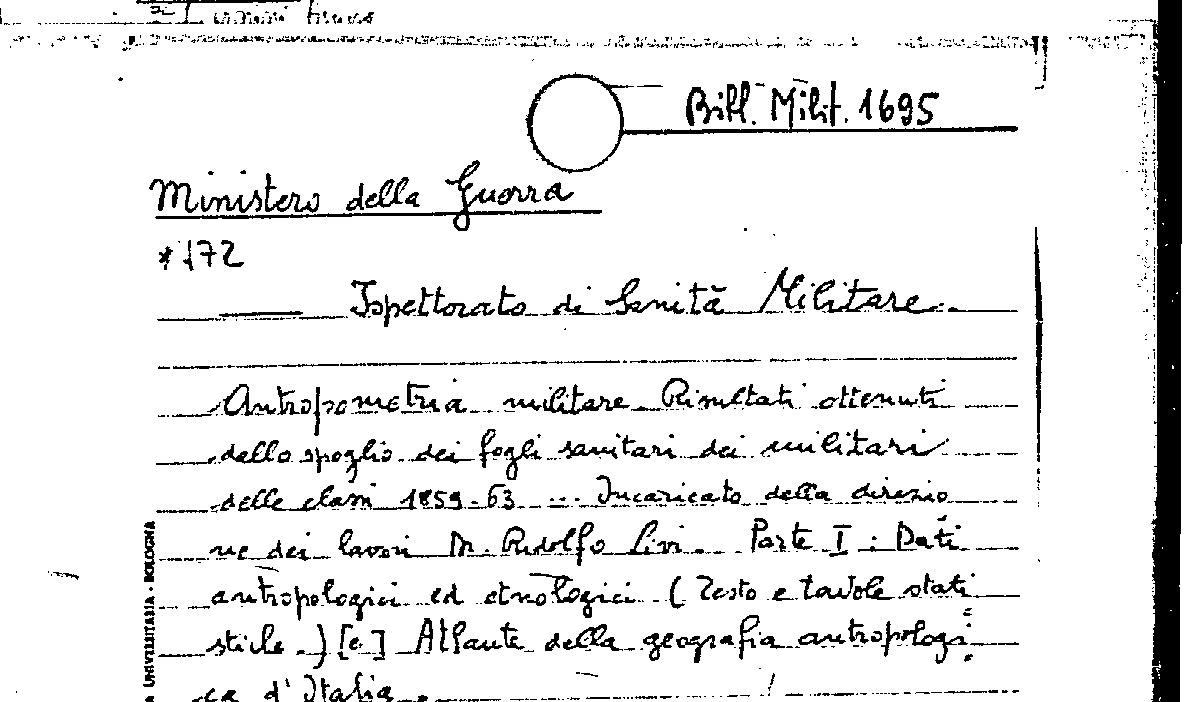 Bibl. Milit. 1695
Ministero della Guerra
*172
Ispettorato di Sanità Militare.
Antropometria militare. Risultati ottenuti
dallo spoglio dei fogli sanitari dei militari
delle classi 1859-63 ... Incaricato della direzio
ne dei lavori M. Ridolfo Livi. Parte I: Dati
antropologici ed etnologici (Testo e tavole stati
stiche.) [e] Atlante della geografia antropologi
ca d'Italia.
UNIVERSITARIA - BOLOGNA